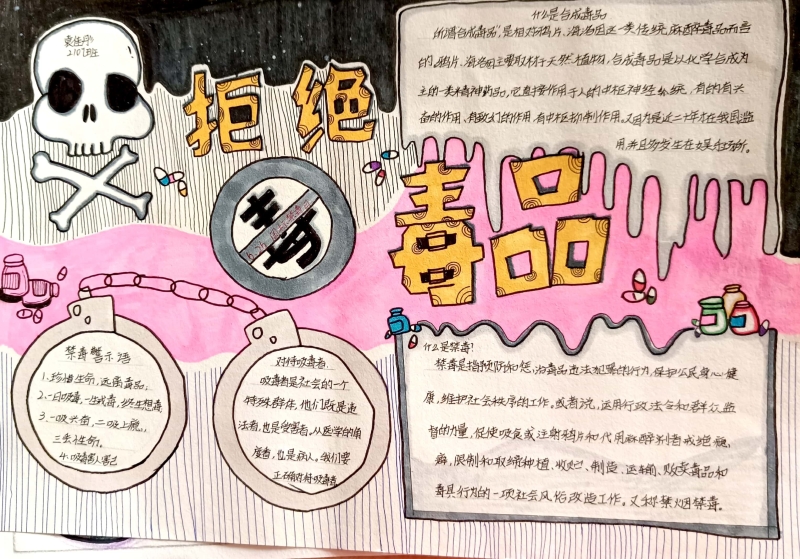 袁佳彤
2107班
拒绝
毒品
毒
6.26 国际禁毒日
什么是合成毒品
所谓合成毒品，是相对鸦片、海洛因这一类传统麻醉毒品而言
的。鸦片、海洛因主要取材于天然植物，合成毒品是以化学合成为
主的一类精神药品，它直接作用于人的中枢神经系统，有的有兴
奋的作用、有致幻的作用，有中枢抑制作用。又因为是近二十年才在我国滥
用，并且多发生在娱乐场所。
禁毒警示语
1、珍惜生命，远离毒品；
2、一日吸毒，一生戒毒，终生想毒
3、一吸兴奋，二吸上瘾，
三丢性命。
4、吸毒害人害己
对待吸毒者
吸毒者是社会的一个
特殊群体，他们既是违
法者，也是受害者，从医学的角
度看，也是病人。我们要
正确对待吸毒者
什么是禁毒？
禁毒是指预防和惩治毒品违法犯罪的行为，保护公民身心健
康，维护社会秩序的工作。或者说，运用行政法令和群众监
督的力量，促使吸食或注射鸦片和代用麻醉剂者戒绝瘾
癖，限制和取缔种植、收贮、制造、运输、贩卖毒品和
毒具行为的一项社会风俗改造工作。又称禁烟禁毒。